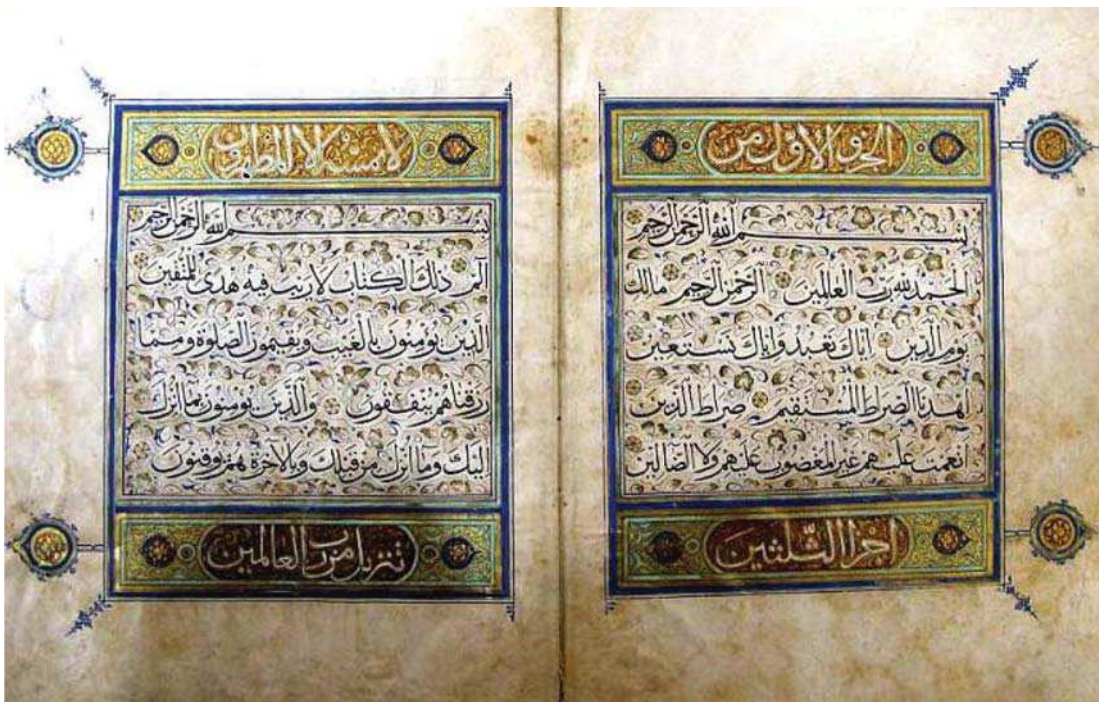 الجزو الاول من
بسم الله الرحمن الرحيم
الحمد لله رب العالمين الرحمن الرحيم مالك
يوم الدين اياك نعبد واياك نستعين
اهدنا الصراط المستقيم صراط الذين
انعمت عليهم غير المغضوب عليهم ولا الضالين
اجزا الثلثين
لا يمسه الا المطهرون
بسم الله الرحمن الرحيم
الم ذلك الكتاب لا ريب فيه هدى للمتقين
الذين يومنون بالغيب ويقيمون الصلوة ومما
رزقناهم ينفقون والذين يومنون بما انزل
اليك وما انزل من قبلك وبالاخرة هم يوقنون
تنزيل من رب العالمين